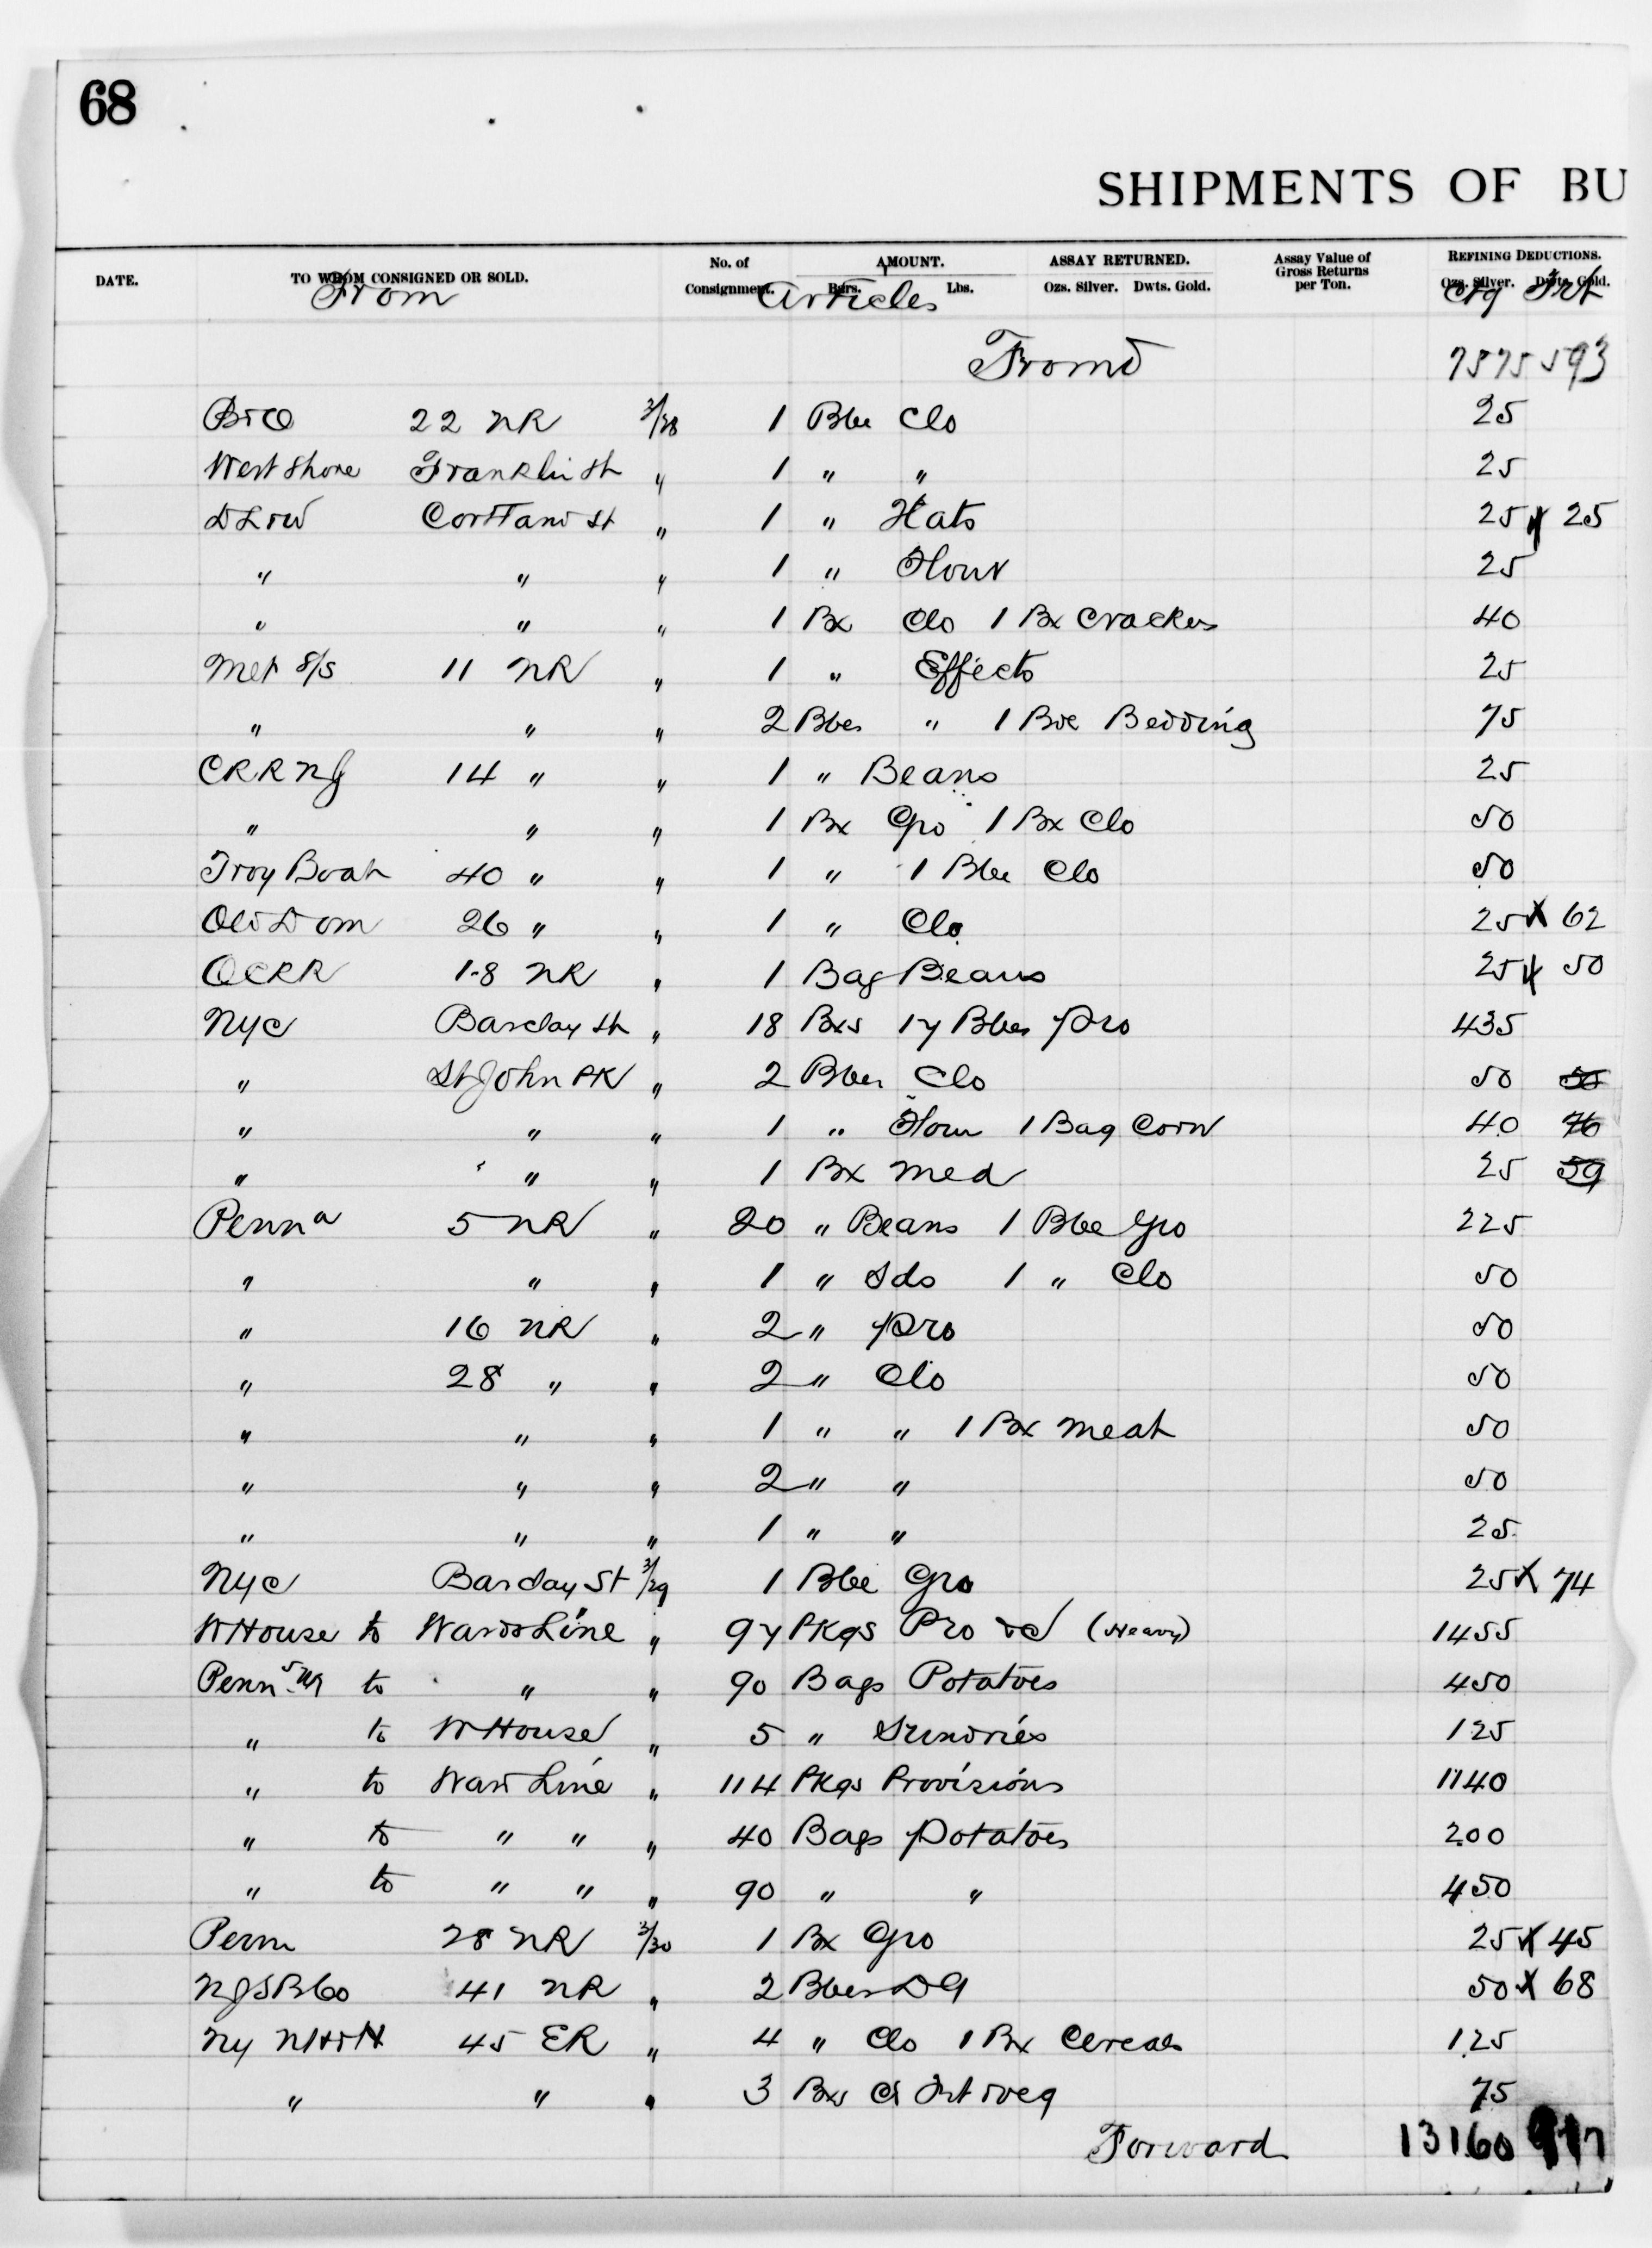 68
SHIPMENTS OF BU
DATE. TO WHOM CONSIGNED OR SOLD. No. of Consignment. AMOUNT. Bars. Lbs. ASSAY RETURNED. Ozs. Silver. Dwts. Gold. Assay Value of Gross Returns per Ton. REFINING DEDUCTIONS. Ozs. Silver. Dwts. Gold.
From Articles Ctg Frt
7575 593
B&O 22 NR 3/28 1 Bbl Clo 25
West Shore Franklin St " 1 " " 25
DL&W Cortland St " 1 " Hats 25 x 25
" " " 1 " Flour 25
" " " 1 Bx Clo 1 Bx Crackers 40
Met S/S 11 NR " 1 " Effects 25
" " " 2 Bbls " 1 Bdl Bedding 75
CRRNJ 14 " " 1 " Beans 25
" " " 1 Bx Gro 1 Bx Clo 50
Troy Boat 40 " " 1 " 1 Bbl Clo 50
Old Dom 26 " " 1 " Clo 25 x 62
OCRR 18 NR " 1 Bag Beans 25 x 50
NYC Barclay St " 18 Bxs 17 Bbls Pro 435
" St John PK " 2 Bbls Clo 50 50
" " " 1 " Flour 1 Bag Corn 40 76
" " " 1 Bx Med 25 59
Penna 5 NR " 20 " Beans 1 Bbl Gro 225
" " " 1 " Sds 1 " Clo 50
" 16 NR " 2 " Pro 50
" 28 " " 2 " Clo 50
" " " 1 " " 1 Bx Meat 50
" " " 2 " " 50
" " " 1 " " 25
NYC Barclay St 3/29 1 Bbl Gro 25 x 74
W House to Wards Line " 97 Pkgs Pro &c (Heavy) 1455
Penn 5 NR to " " 90 Bags Potatoes 450
" to W House " 5 " Sundries 125
" to Ward Line " 114 Pkgs Provisions 1140
" to " " " 40 Bags Potatoes 200
" to " " " 90 " " 450
Penn 28 NR 3/30 1 Bx Gro 25 x 45
NJSBCo 41 NR " 2 Bbls DG 50 x 68
NY NH&H 45 ER " 4 " Clo 1 Bx Cereals 125
" " " 3 Bxs 75
Forward 13160